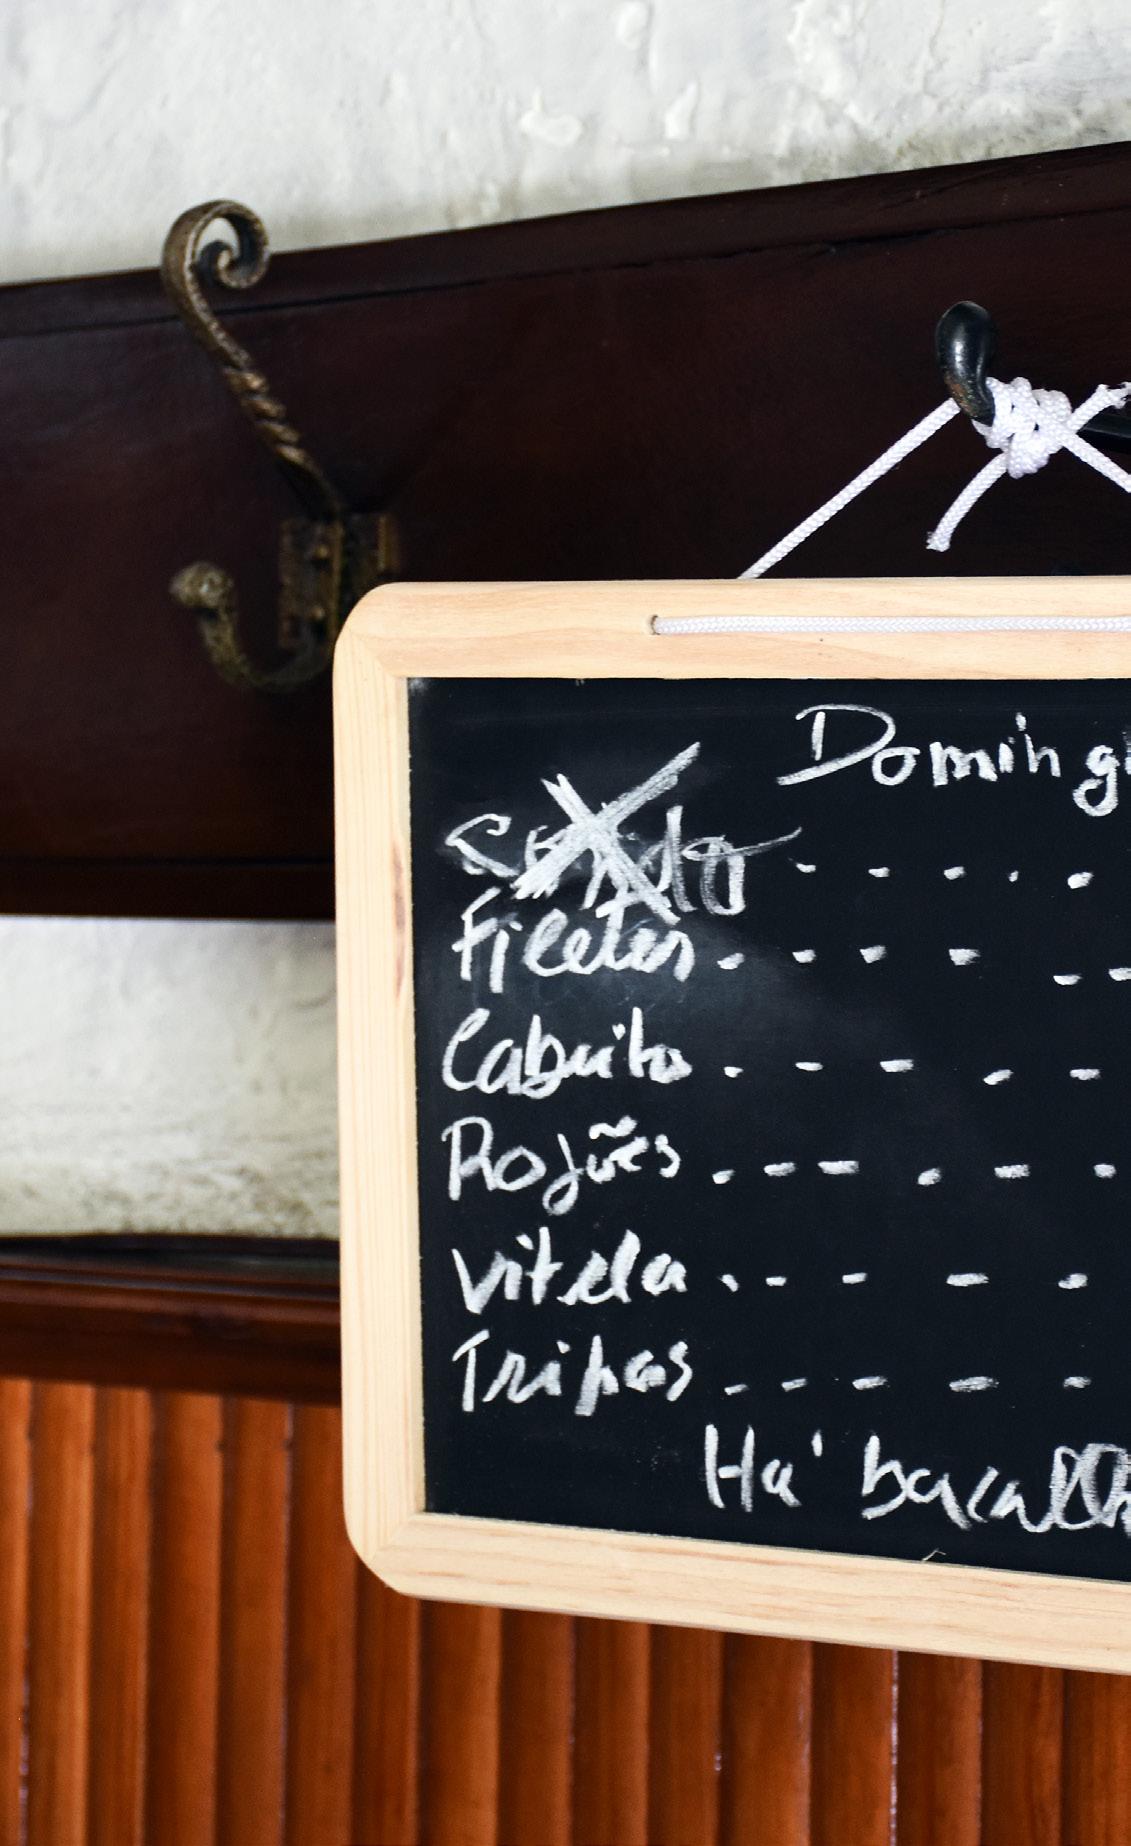 Doming
Filetes
Cabrito
Rojões
Vitela
Tripas
Há bacalh